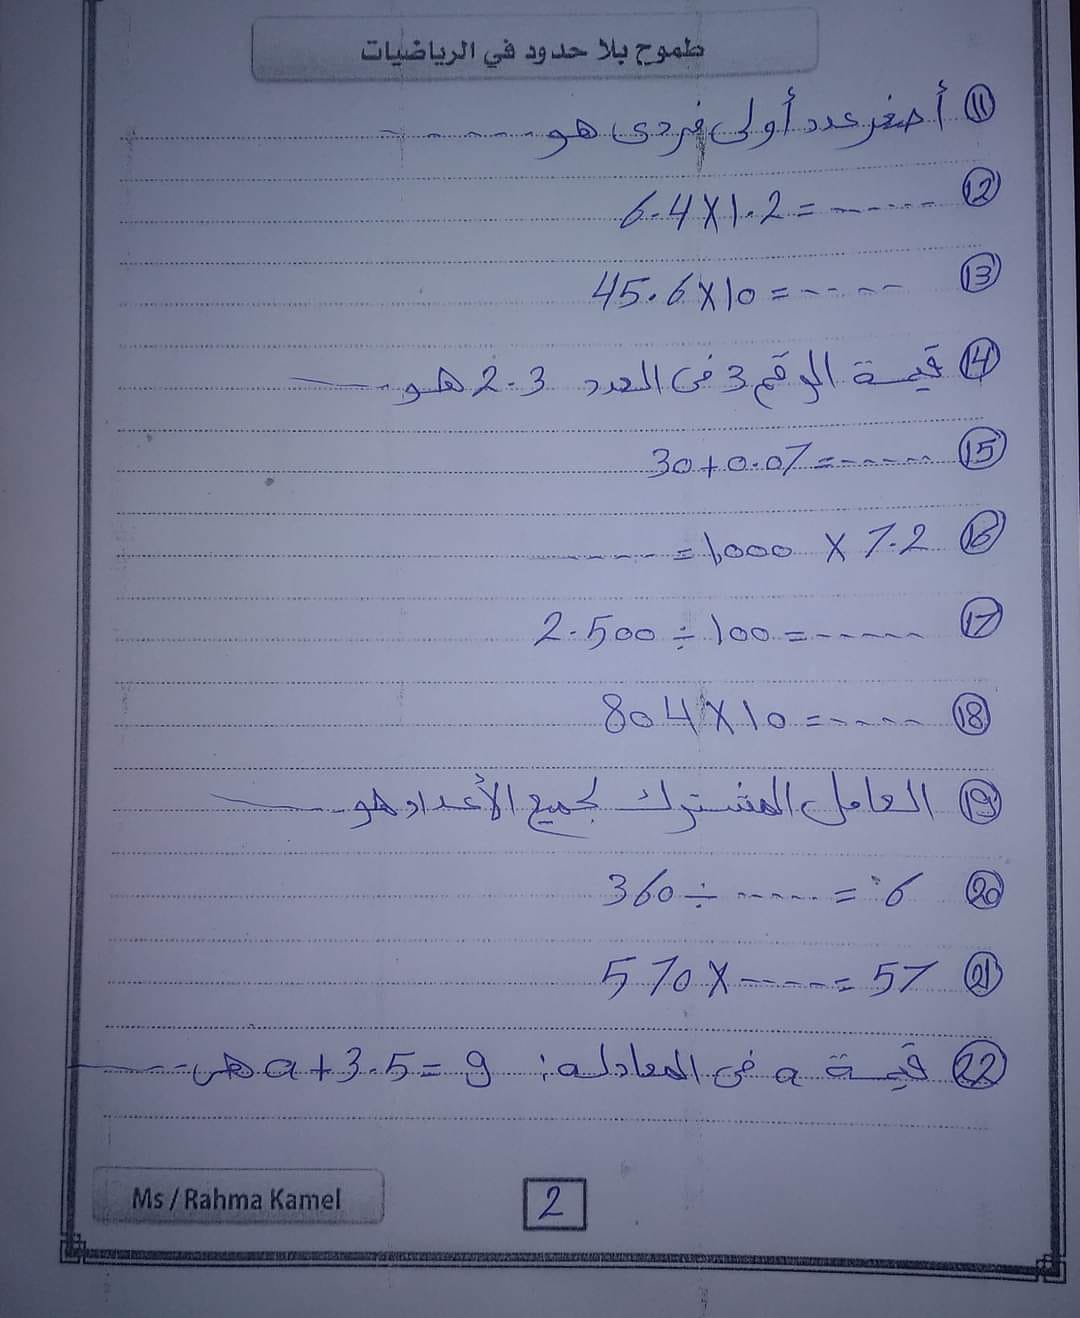 طموح بلا حدود في الرياضيات
⑪ أصغر عدد أولى فردى هو ------
⑫ 6.4 X 1.2 = ------
⑬ 45.6 X 10 = -----
⑭ قيمة الرقم 3 فى العدد 2.3 هو ----
⑮ 30 + 0.07 = ------
⑯ 7.2 X 1,000 = -----
⑰ 2.500 ÷ 100 = ------
⑱ 804 X 10 = -----
⑲ العامل المشترك لجميع الأعداد هو ----
⑳ 360 ÷ ----- = 6
㉑ 570 X ---- = 57
㉒ قيمة a فى المعادلة: a + 3.5 = 9 هى ----
Ms / Rahma Kamel
2